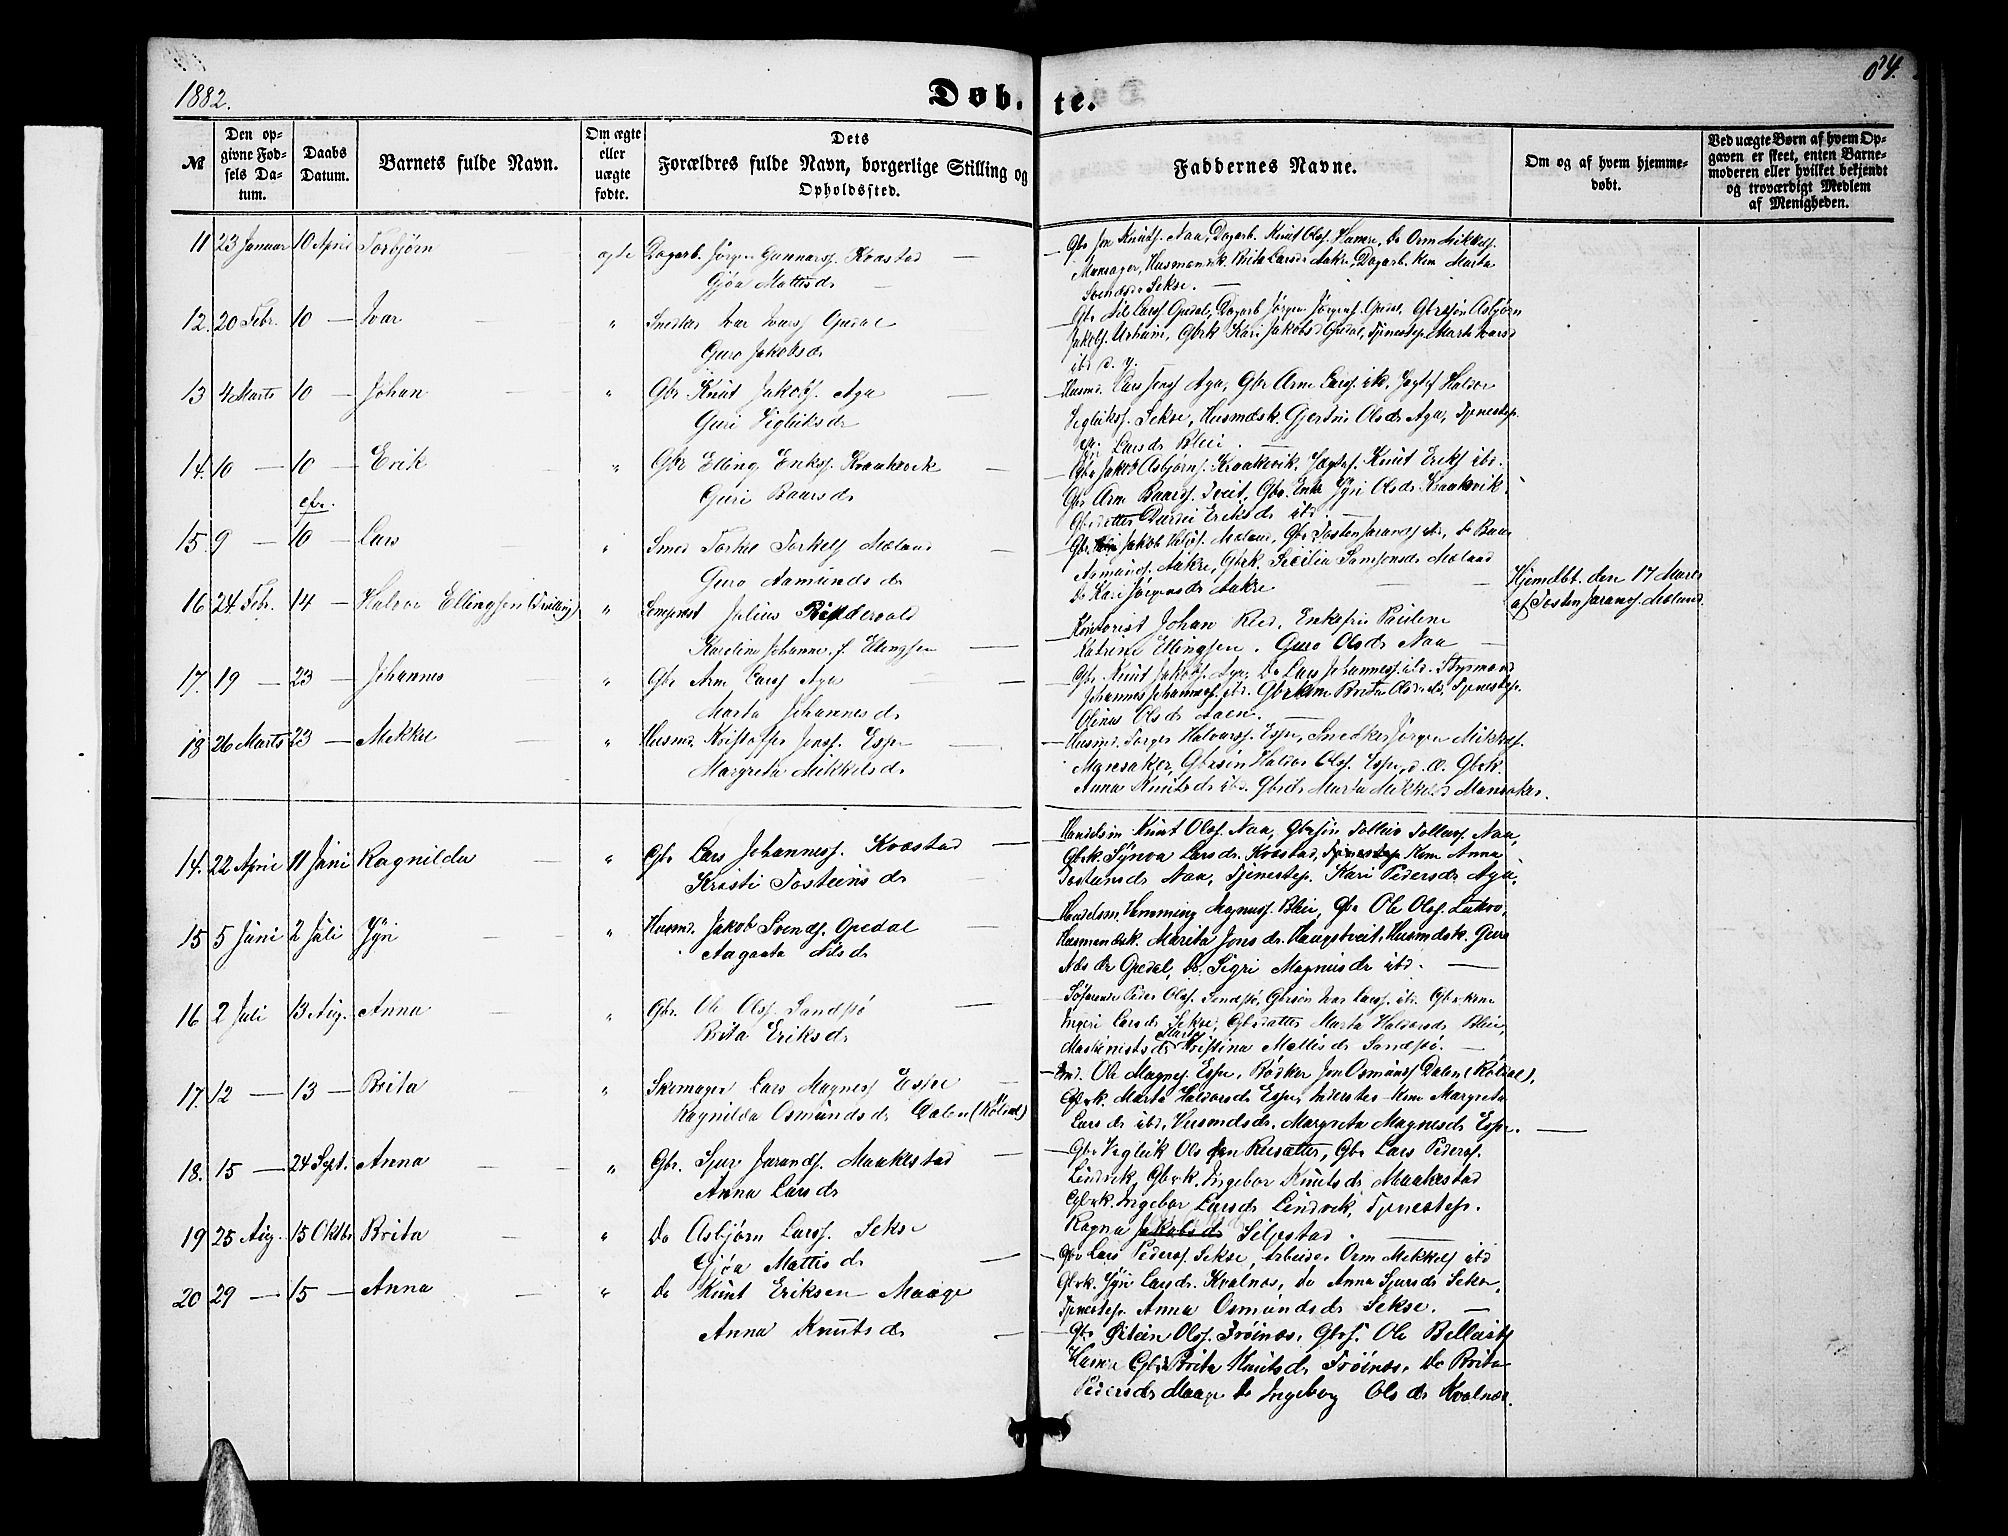 1882.
Døb. te.
64.
№
Den op-
givne Fød-
sels Da-
tum.
Daabs
Datum.
Barnets fulde Navn.
Om ægte
eller
uægte
fødte.
Dets
Forældres fulde Navn, borgerlige Stilling og
Opholdssted.
Faddernes Navne.
Om og af hvem hjemme-
døbt.
Ved uægte Børn af hvem Op-
gaven er skeet, enten Barne-
moderen eller hvilket bekjendt
og troværdigt Medlem
af Menigheden.
11 23 Januar 10 April Torbjørn ægte Dagarb. Jörgen Gunnars. Kvæstad
Gjöa Mattisdr
Gbr Jon Knuts. Naa, Dagarb. Knut Ols. Hamre, Do Orm Mikkels.
Mansager, Husmandsk. Brita Larsdr Aakre, Dagarb. Kone Marta
Svendsdr Sekse.
12. 20 Febr. 10 — Ivar " Snedker Ivar Ivars. Opedal
Guro Jakobsdr
Gbr Nils Larss Opedal, Dagarb Jörgen Jörgens. Opedal, Gbrsön Asbjörn
Jakobs. Urheim, Gbrk Kari Jakobsd Opedal, Tjenestep. Marta Ivarsd
ibd
13 4 Marts 10 — Johan " Gbr Knut Jakobs. Aga
Guri Vigleiksdr
Husmd. Lars Jens. Aga, Gbr Arne Larss. ibd, Halvor
Vigleiks. Sekse, Husmdsk. Gjertru Olsdr Aga, Tjenestep.
Larsdr Bleie
14. 10 — 10 — Erik " Gbr Elling Eriks. Kraakevik
Guri Baarsdr
Gbr Jakob Asbjørns. Kraakevik, Knut Eriks ibd.
Gbr Arne Baards. Tveit, Gbr. Enke Syni Olsdr Kraakevik
Gbrdatter Durdei Eriksdr ibd.
ebr.
15. 9 — 10 — Lars " Smed Torkel Torkels Mæland
Guro Aamundsdr
Gbr. Jakob Mæland, Gbr Tosten Jarands ibd, Do Baar
Aamunds. Aakre, Gbrk. Secilia Samsonsdr Mæland
Do Kari Jörgensdr Aakre
Hjemdbt. den 17 Marts
af Tosten Jarans. Mæland
16 24 Febr. 14 — Halvor Ellingsen (Tvilling) " Julius
Karoline Johanne f. Ellingsen
Kontorist Johan Enkefru Pauline
Katrine Ellingsen. Guro Olsdr Naa
17. 19 — 23 — Johannes " Gbr Arne Larss Aga
Marta Johannesdr
Gbr Knut Jakobs. Aga, Do Lars Johanness. ibd. Styrmand
Johannes Johanness. ibd. Gbrkone Brita Olsdr ibd, Tjenestep.
Olina Olsdr Aaen.
18 26 Marts 23 — Mikkel " Husmd. Kristoffer Jens. Espe
Margreta Mikkelsdr
Husmd. Torger Halvarss. Espe, Snedker Jörgen Mikkels.
Mansaker, Gbrsön Haldor Ols. Espe, Gbrk.
Anna Knutsdr ibd. Gbrdt Marta Mikkelsd Mansaker.
14. 22 April 11 Juni Ragnilda " Gbr Lars Johanness. Kvæstad
Kristi Tosteinsdr
Handelsm. Knut Ols. Naa, Gbrsön Tolleiv Tolleivs. Naa,
Gbrk. Synva Larsdr. Kvæstad, Tjenestep. Kone Anna
Tosteinsdr Naa, Tjenestep. Kari Pedersdr Aga.
15 5 Juni 2 Juli Jyri " Husmd. Jakob Svends. Opedal
Aagaata Nilsdr
Handelsm. Hemming Magnuss. Bleie, Gbr Ole Ols. Lutro,
Husmandsk. Marita Jonsdr. Haugstveit, Husmdsk. Guro
Nilsdr Opedal, Do. Sigri Magnusdr ibd.
16 2 Juli 13 Aug. Anna " Gbr. Ole Ols. Sandstö
Brita Eriksdr
Söfarende Peder Ols. Sandstö, Gbrsön Ivar Larss. ibd. Gbrkone
Ingeri Larsdr Sekse, Gbrdatter Marta Haldorsdr Bleie,
Maskinistsdr Marta Kristina Mattisdr Sandstö.
17. 12 — 13 — Brita " Skomager Lars Magness Espe
Ragnilda Osmundsdr Dalen (Röldal)
Smd. Ole Magnes. Espe, Bødker Jon Osmunds Dalen (Röldal),
Gbrk. Marta Haldorsdr Espe, Inderster Kone Margreta
Larsdr ibd, Husmdsdr. Margreta Magnesdr Espe.
18. 15 — 24 Sept. Anna " Gbr. Sjur Jarands. Maakestad
Anna Larsdr
Gbr Vigleik Olssen Reisæter, Gbr Lars Peders.
Lindvik, Gbrk. Ingebor Knutsdr Maakestad
Gbrk. Ingebor Larsdr Lindvik, Tjenestep.
Ragna Jakobsdr Siljestad.
19 25 Aug. 15 Oktbr Brita " Do Asbjørn Larss. Sekse
Gjöa Mattisdr
Gbr Lars Peders Sekse, Arbeider Orm Mikkels ibd
Gbrk. Jyri Larsdr. Kvalnes, Do Anna Sjursdr Sekse,
Tjenestep. Anna Osmundsdr Sekse.
20 29 — 15 — Anna " Do Knut Eriksen Maage
Anna Knutsdr
Gbr Östein Ols. Fröinæs, Gbrs. Ole
Gbrk Brita Knutsdr Fröinæs. Do Brita
Pedersdr Maage Do Ingeborg Olsdr Kvalnæs.